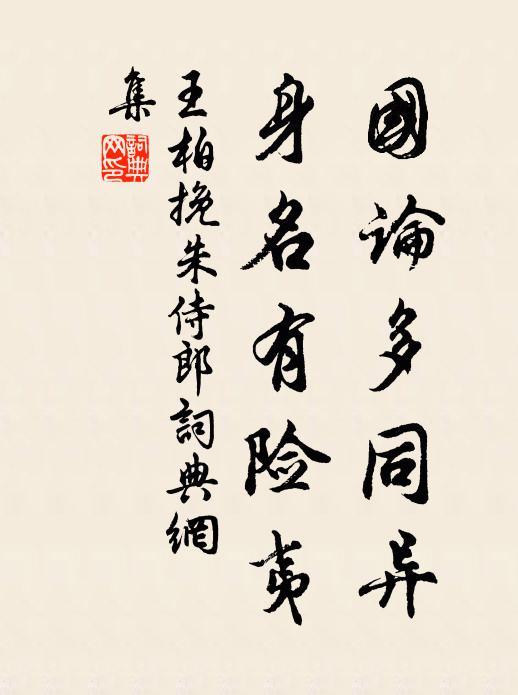 國論多同异
身名有险夷
王柏挽朱侍郎詞典網
集
詞典網印